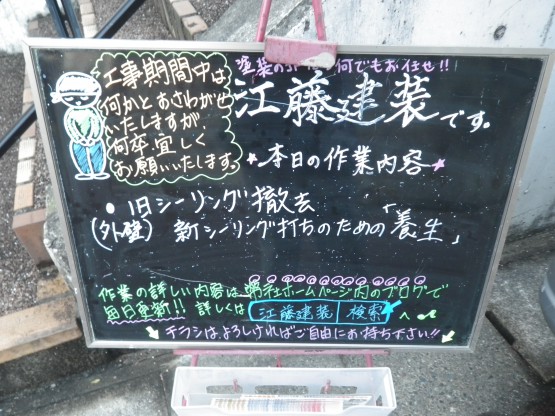 工事期間中は
何かとおさわがせ
いたしますが、
何卒宜しく
お願いいたします。
塗装の 何でもお任せ!!
江藤建装です。
本日の作業内容
・旧シーリング撤去
(外壁) 新シーリング打ちのための「養生」
作業の詳しい内容は弊社ホームページ内のブログで
毎日更新!! 詳しくは 江藤建装 検索 へ
チラシは、よろしければご自由にお持ち下さい!!